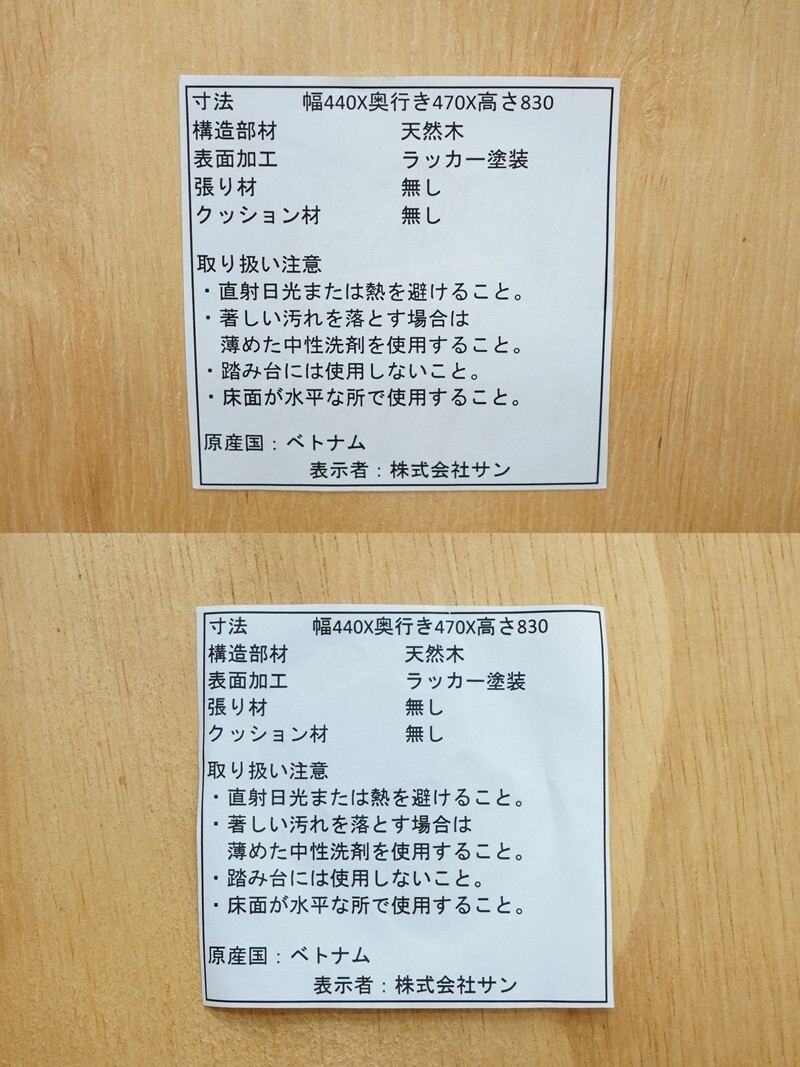 寸法 幅440X奥行き470X高さ830
構造部材 天然木
表面加工 ラッカー塗装
張り材 無し
クッション材 無し
取り扱い注意
・直射日光または熱を避けること。
・著しい汚れを落とす場合は
薄めた中性洗剤を使用すること。
・踏み台には使用しないこと。
・床面が水平な所で使用すること。
原産国：ベトナム
表示者：株式会社サン
寸法 幅440X奥行き470X高さ830
構造部材 天然木
表面加工 ラッカー塗装
張り材 無し
クッション材 無し
取り扱い注意
・直射日光または熱を避けること。
・著しい汚れを落とす場合は
薄めた中性洗剤を使用すること。
・踏み台には使用しないこと。
・床面が水平な所で使用すること。
原産国：ベトナム
表示者：株式会社サン